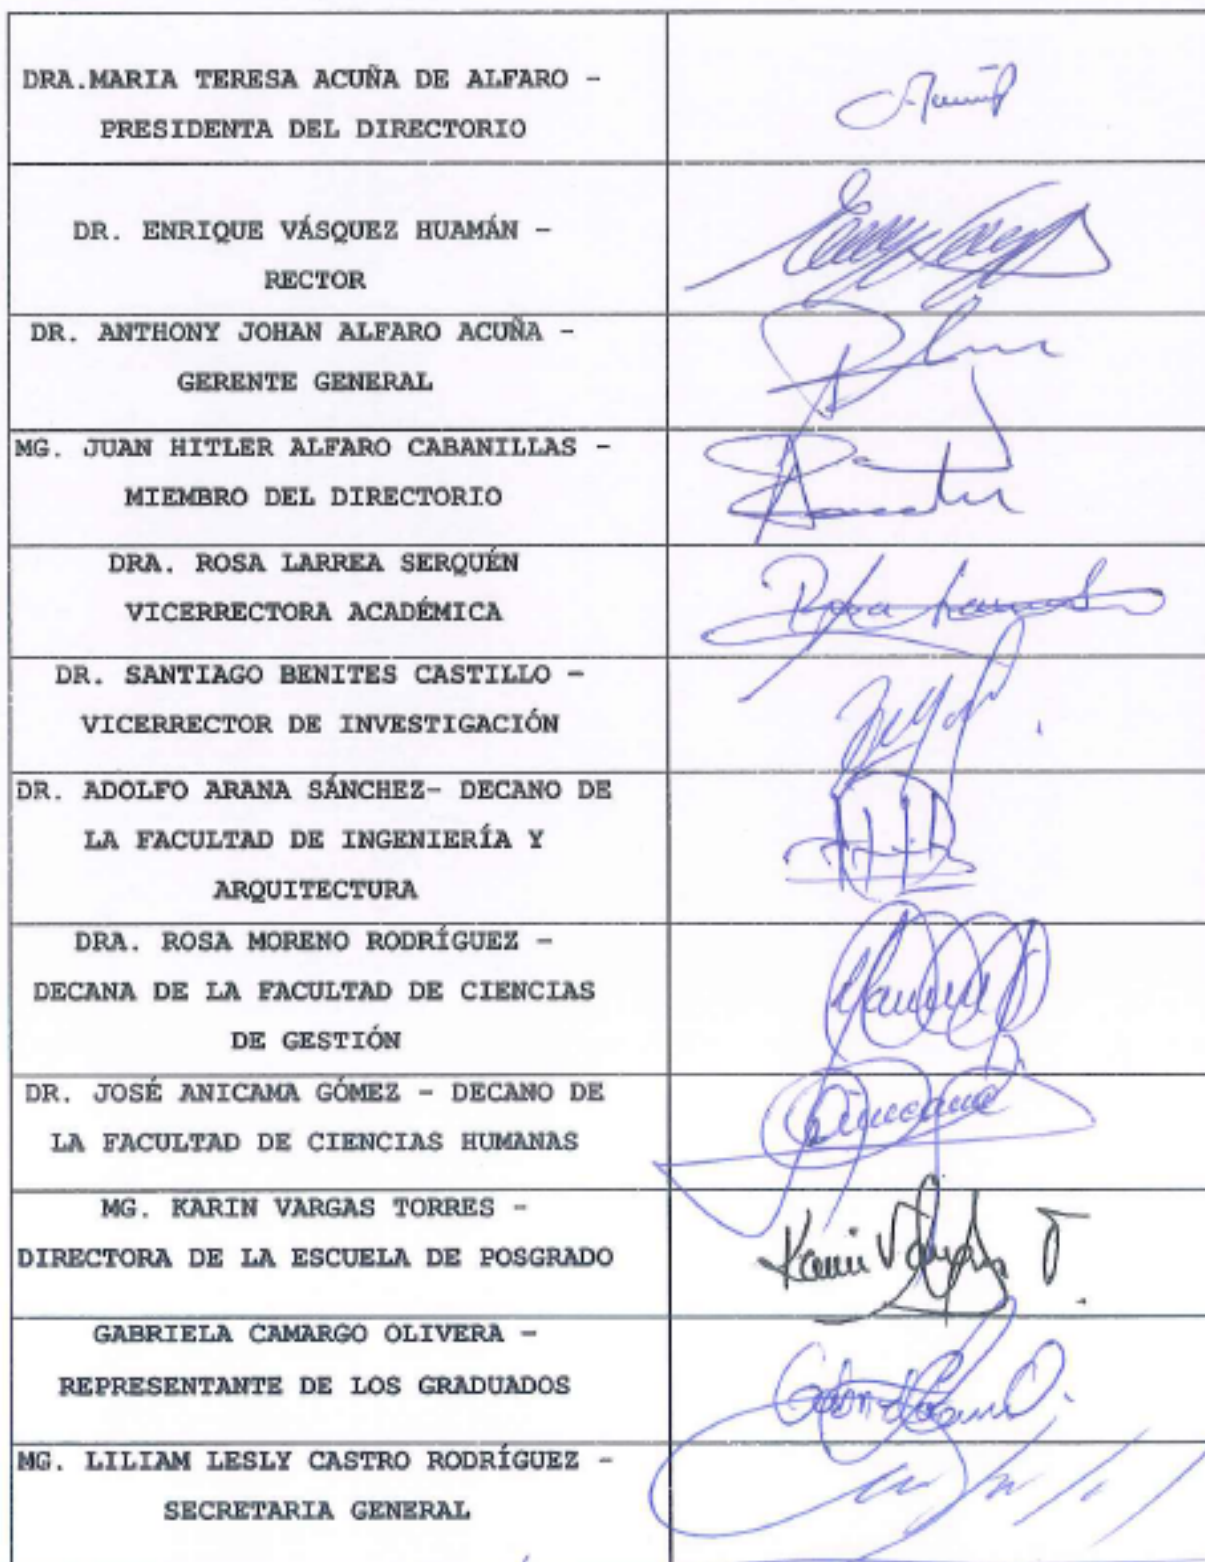 DRA.MARIA TERESA ACUÑA DE ALFARO -
PRESIDENTA DEL DIRECTORIO
DR. ENRIQUE VÁSQUEZ HUAMÁN -
RECTOR
DR. ANTHONY JOHAN ALFARO ACUÑA -
GERENTE GENERAL
MG. JUAN HITLER ALFARO CABANILLAS -
MIEMBRO DEL DIRECTORIO
DRA. ROSA LARREA SERQUÉN
VICERRECTORA ACADÉMICA
DR. SANTIAGO BENITES CASTILLO -
VICERRECTOR DE INVESTIGACIÓN
DR. ADOLFO ARANA SÁNCHEZ- DECANO DE
LA FACULTAD DE INGENIERÍA Y
ARQUITECTURA
DRA. ROSA MORENO RODRÍGUEZ -
DECANA DE LA FACULTAD DE CIENCIAS
DE GESTIÓN
DR. JOSÉ ANICAMA GÓMEZ - DECANO DE
LA FACULTAD DE CIENCIAS HUMANAS
MG. KARIN VARGAS TORRES -
DIRECTORA DE LA ESCUELA DE POSGRADO
GABRIELA CAMARGO OLIVERA -
REPRESENTANTE DE LOS GRADUADOS
MG. LILIAM LESLY CASTRO RODRÍGUEZ -
SECRETARIA GENERAL